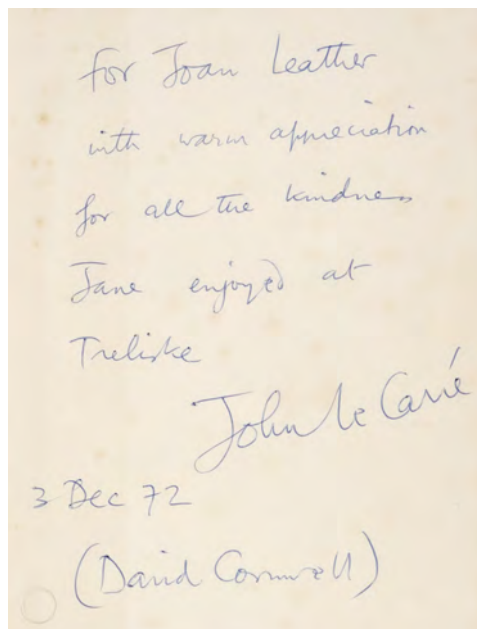 for Joan Leather
with warm appreciation
for all the kindness
Jane enjoyed at
Treliske
John le Carré
3 Dec 72
(David Cornwell)